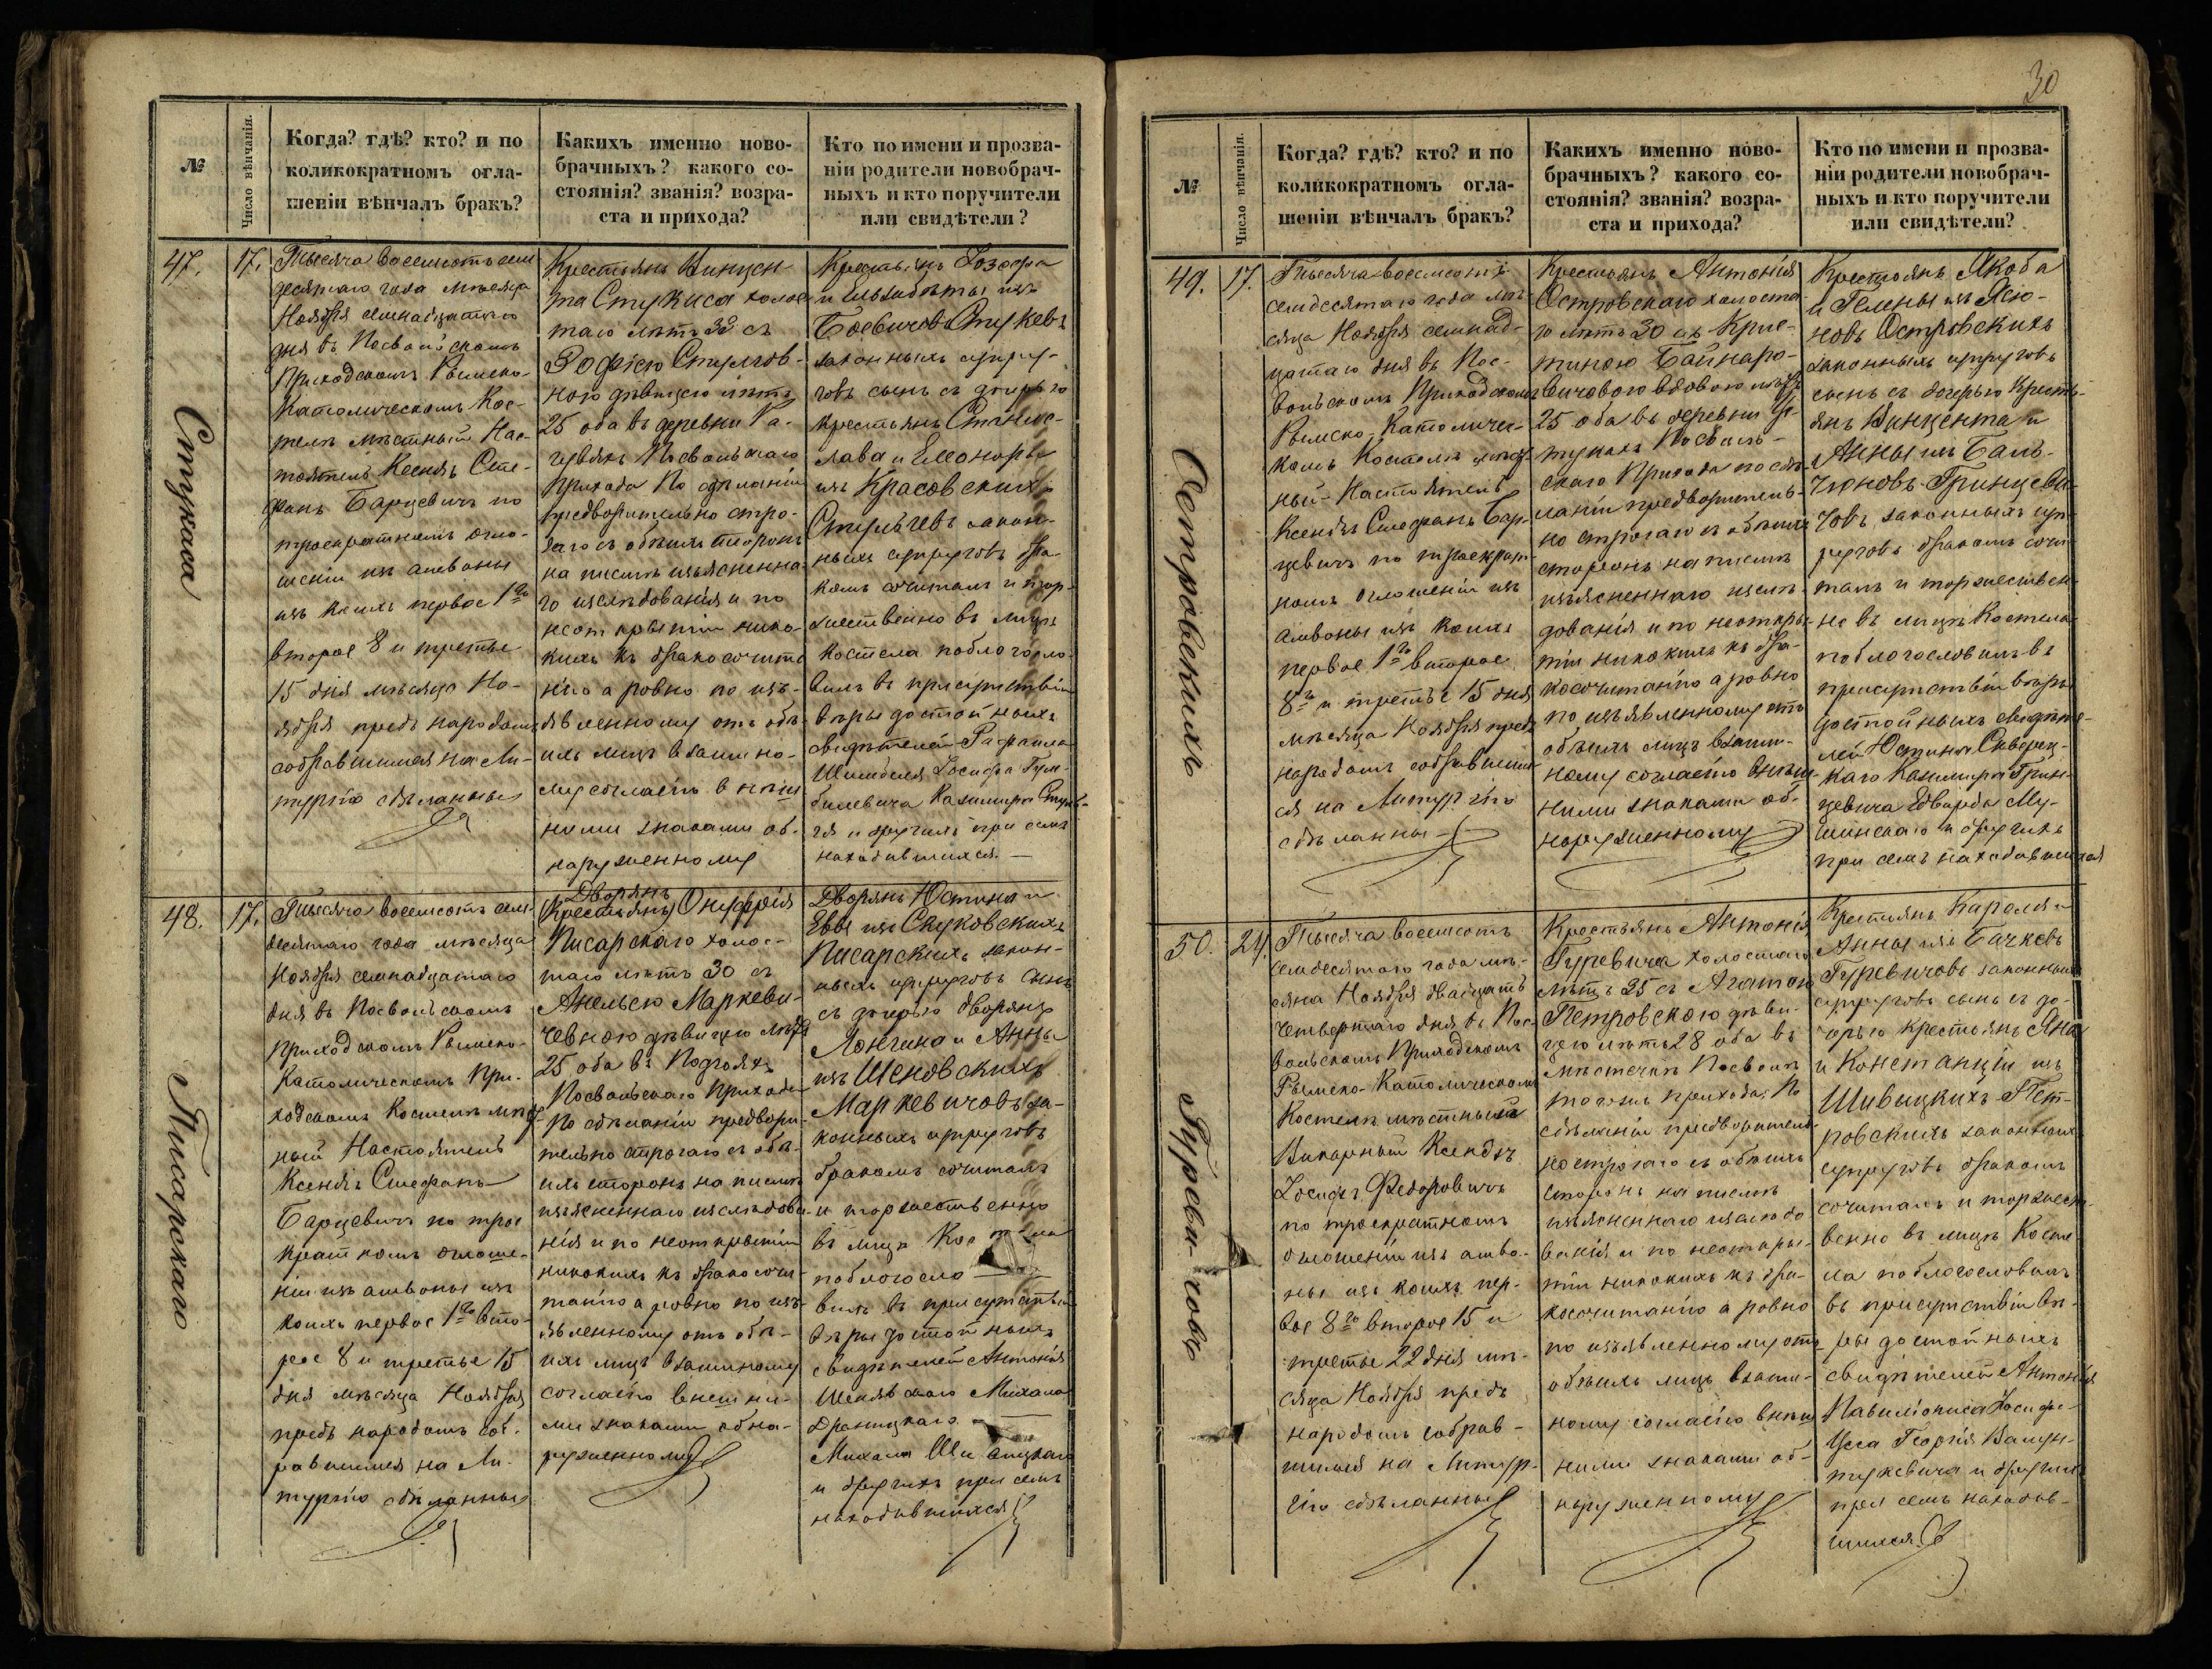 №
Число вѣнчанія.
Когда? гдѣ? кто? и по
коликократномъ огла-
шеніи вѣнчалъ бракъ?
Какихъ именно ново-
брачныхъ? какого со-
стоянія? званія? возра-
ста и прихода?
Кто по имени и прозва-
ніи родители новобрач-
ныхъ и кто поручители
или свидѣтели?
47.
17.
Стукаса
Тысяча восемсотъ семи
десятаго года мѣсяца
Ноября семнадцатого
дня въ Посвольскомъ
Приходскомъ Римско-
Католическомъ Кос-
телѣ мѣстный Нас-
тоятель Ксендзъ Сте-
фанъ Барцевичъ по
троекратномъ огло-
шеніи изъ амвоны
изъ коихъ первое 1го
второе 8 и третье
15 дня мѣсяца Но-
ября предъ народомъ
собравшимся на Ли-
тургію сдѣланные
Крестьянъ Винцен-
та Стукаса холос-
таго лѣтъ 32 съ
Зофіею Стулгов-
ною дѣвицею лѣтъ
25 оба въ деревни Ра-
Посвольскаго
Прихода По сдѣланіи
предворительно стро-
гаго съ обѣихъ сторонъ
на писмѣ изъясненна-
го изслѣдованія и по
неоткрытіи нико-
кихъ къ бракосочита
нію а ровно по изъ-
явленному отъ обѣ-
ихъ лицъ взаимно-
му согласію внѣш
ними знаками об-
наруженному
Крестьянъ Іозефа
и Ельзбѣты изъ
Боевичовъ Стукевъ
законныхъ супру-
говъ сынъ съ дочерью
Крестьянъ Станис-
лава и Елеоноры
изъ Красовскихъ
Стульгевъ закон-
ныхъ супруговъ бра
комъ сочиталъ и тор-
жественно въ лицѣ
костела поблогосло-
вилъ въ присутствіи
вѣры достойныхъ
свидѣтелей Рафаила
Шимбеля Іосифа Гум-
билевича Казимира Стуль-
гя и другихъ при семъ
находившихся.
48.
17.
Писарского
Тысяча восемсотъ сем-
десятаго года мѣсяца
Ноября семнадцатаго
дня въ Посвольскомъ
Приходскомъ Римско-
Католическомъ При-
ходскомъ Костелѣ мѣст
ный Настоятель
Ксендзъ Стефанъ
Барцевичъ по трое
кратномъ оглоше-
ніи изъ амвоны изъ
коихъ первое 1го вто-
рое 8 и третье 15
дня мѣсяца Ноября
предъ народомъ соб-
равшимся на Ли-
тургію сдѣланные
Дворянъ
(Крестьянъ) Онуфрія
Писарскаго холос-
таго лѣтъ 30 съ
Анелею Маркеви-
чевною дѣвицею лѣтъ
25 оба въ Подголяхъ
Посвольскаго Прихода
По сдѣланіи предвори-
тельно строгаго съ обѣ-
ихъ сторонъ на писмѣ
изъясненнаго изслѣдова-
нія и по неоткрытіи
никокихъ къ бракосочи-
танію а ровно по изъ-
явленному отъ обѣ-
ихъ лицъ взаимному
согласію внешни-
ми знаками обна-
руженному
Дворянъ Юстина и
Евы изъ Скуковскихъ
Писарскихъ закон-
ныхъ супруговъ сынъ
съ дочерью дворянъ
Лонгина и Анны
изъ Шеновскихъ
Маркевичовъ за-
конныхъ супруговъ
бракомъ сочиталъ
и торжественно
въ лицѣ Костела
поблогосло
вилъ въ присутствіи
вѣры достойныхъ
свидѣтелей Антонія
Михала
Драницкаго
Михала
и другихъ при семъ
находившихся
30
№
Число вѣнчанія.
Когда? гдѣ? кто? и по
коликократномъ огла-
шеніи вѣнчалъ бракъ?
Какихъ именно ново-
брачныхъ? какого со-
стоянія? званія? возра-
ста и прихода?
Кто по имени и прозва-
ніи родители новобрач-
ныхъ и кто поручители
или свидѣтели?
49.
17.
Островскихъ
Тысяча восемсотъ
семдесятаго года мѣ-
сяца Ноября семнад-
цатаго дня въ Пос-
вольскомъ Приходскомъ
Римско-Католичес-
комъ Костелѣ мѣст-
ный Настоятель
Ксендзъ Стефанъ Бар-
цевичъ по троекрат-
номъ оглошеніи изъ
амвоны изъ коихъ
первое 1го второе
8го и третье 15 дня
мѣсяца Ноября предъ
народомъ собравшим-
ся на Литургію
сдѣланны
Крестьянъ Антонія
Островскаго холоста
го лѣтъ 30 съ Крис-
тиною Байнаро-
вичовою вдовою лѣтъ
25 оба въ деревни
Посволь-
скаго Прихода по сдѣ-
ланіи предворитель-
но строгаго съ обѣихъ
сторонъ на писмѣ
изъясненнаго изслѣ-
дованія и по неоткры-
тіи никокихъ къ бра-
косочитанію а ровно
по изъявленному отъ
обѣихъ лицъ взаим-
ному согласію внѣш-
ними знаками об-
наруженному
Крестьянъ Якоба
и Гелены изъ Ясю-
новъ Островскихъ
законныхъ супруговъ
сынъ съ дочерью Кресть-
янъ Винцента и
Анны изъ Баль-
чюновъ Гринцеви-
човъ законныхъ суп-
руговъ бракомъ сочи-
талъ и торжествен-
но въ лицѣ Костела
поблогословилъ въ
присутствіи вѣры
достойныхъ свидѣте-
лей Юстина Скверец-
каго Казимира Грин-
цевича Едварда Му-
шинскаго и другихъ
при семъ находившихся
50.
24.
Гуреви-човъ
Тысяча восемсотъ
семдесятаго года мѣ-
сяца Ноября двадцать
четвертаго дня въ Пос-
вольскомъ Приходскомъ
Римско-Католическомъ
Костелѣ мѣстный
Викарный Ксендзъ
Іосифъ Федоровичъ
по троекратномъ
оглошеніи изъ амво-
ны изъ коихъ пер-
вое 8го второе 15 и
третье 22 дня мѣ-
сяца Ноября предъ
народомъ собрав-
шимся на Литур-
гію сдѣланные
Крестьянъ Антонія
Гуревича холостаго
лѣтъ 35 съ Агатою
Петровскою дѣви-
цею лѣтъ 28 оба въ
мѣстечкѣ Посволѣ
тогожъ прихода По
сдѣланіи предворитель-
но строгаго съ обѣихъ
сторонъ на писмѣ
изъясненного изслѣдо
ванія и по неоткры-
тіи никокихъ къ бра-
косочитанію а ровно
по изъявленному отъ
обѣихъ лицъ взаим-
ному согласію внѣш
ними знаками об-
наруженному
Крестьянъ Кароля и
Анны изъ Бачковъ
Гуревичовъ законныхъ
супруговъ сынъ съ до-
черью Крестьянъ Яна
и Констанціи изъ
Шивицкихъ Пет-
ровскихъ законныхъ
супруговъ бракомъ
сочиталъ и торжест-
венно въ лицѣ Косте-
ла поблогословилъ
въ присутствіи вѣ-
ры достойныхъ
свидѣтелей Антонія
Павиліониса Іосифа
Георгія Валун-
тукевича и другихъ
при семъ находив-
шихся